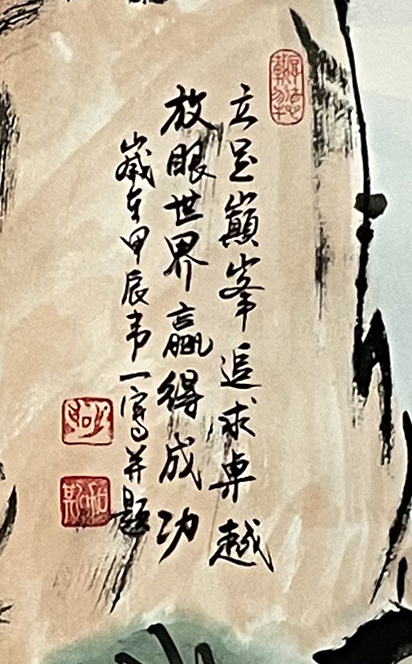 立足巅峯追求卓越
放眼世界贏得成功
歲在甲辰韦一寫并题